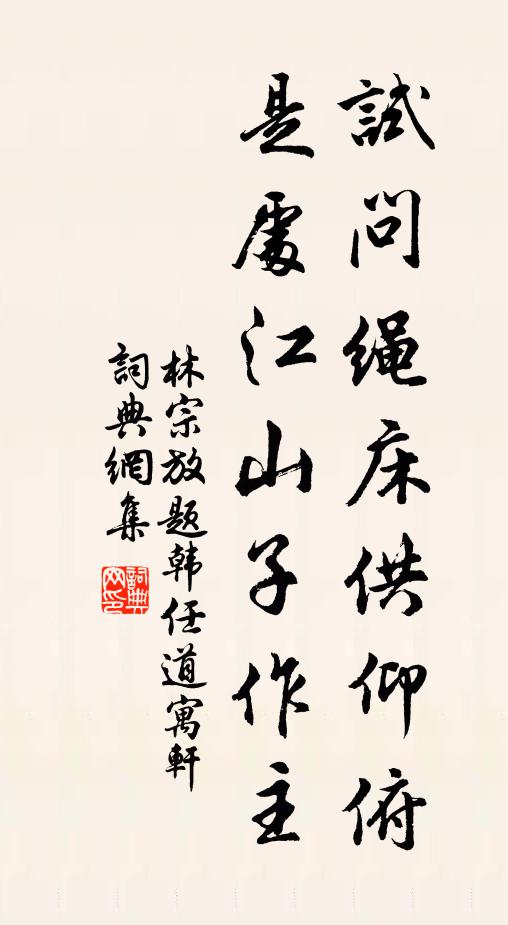 試問绳床供仰俯
是處江山子作主
林宗放题韩任道寓軒
詞典網集
詞典
网印